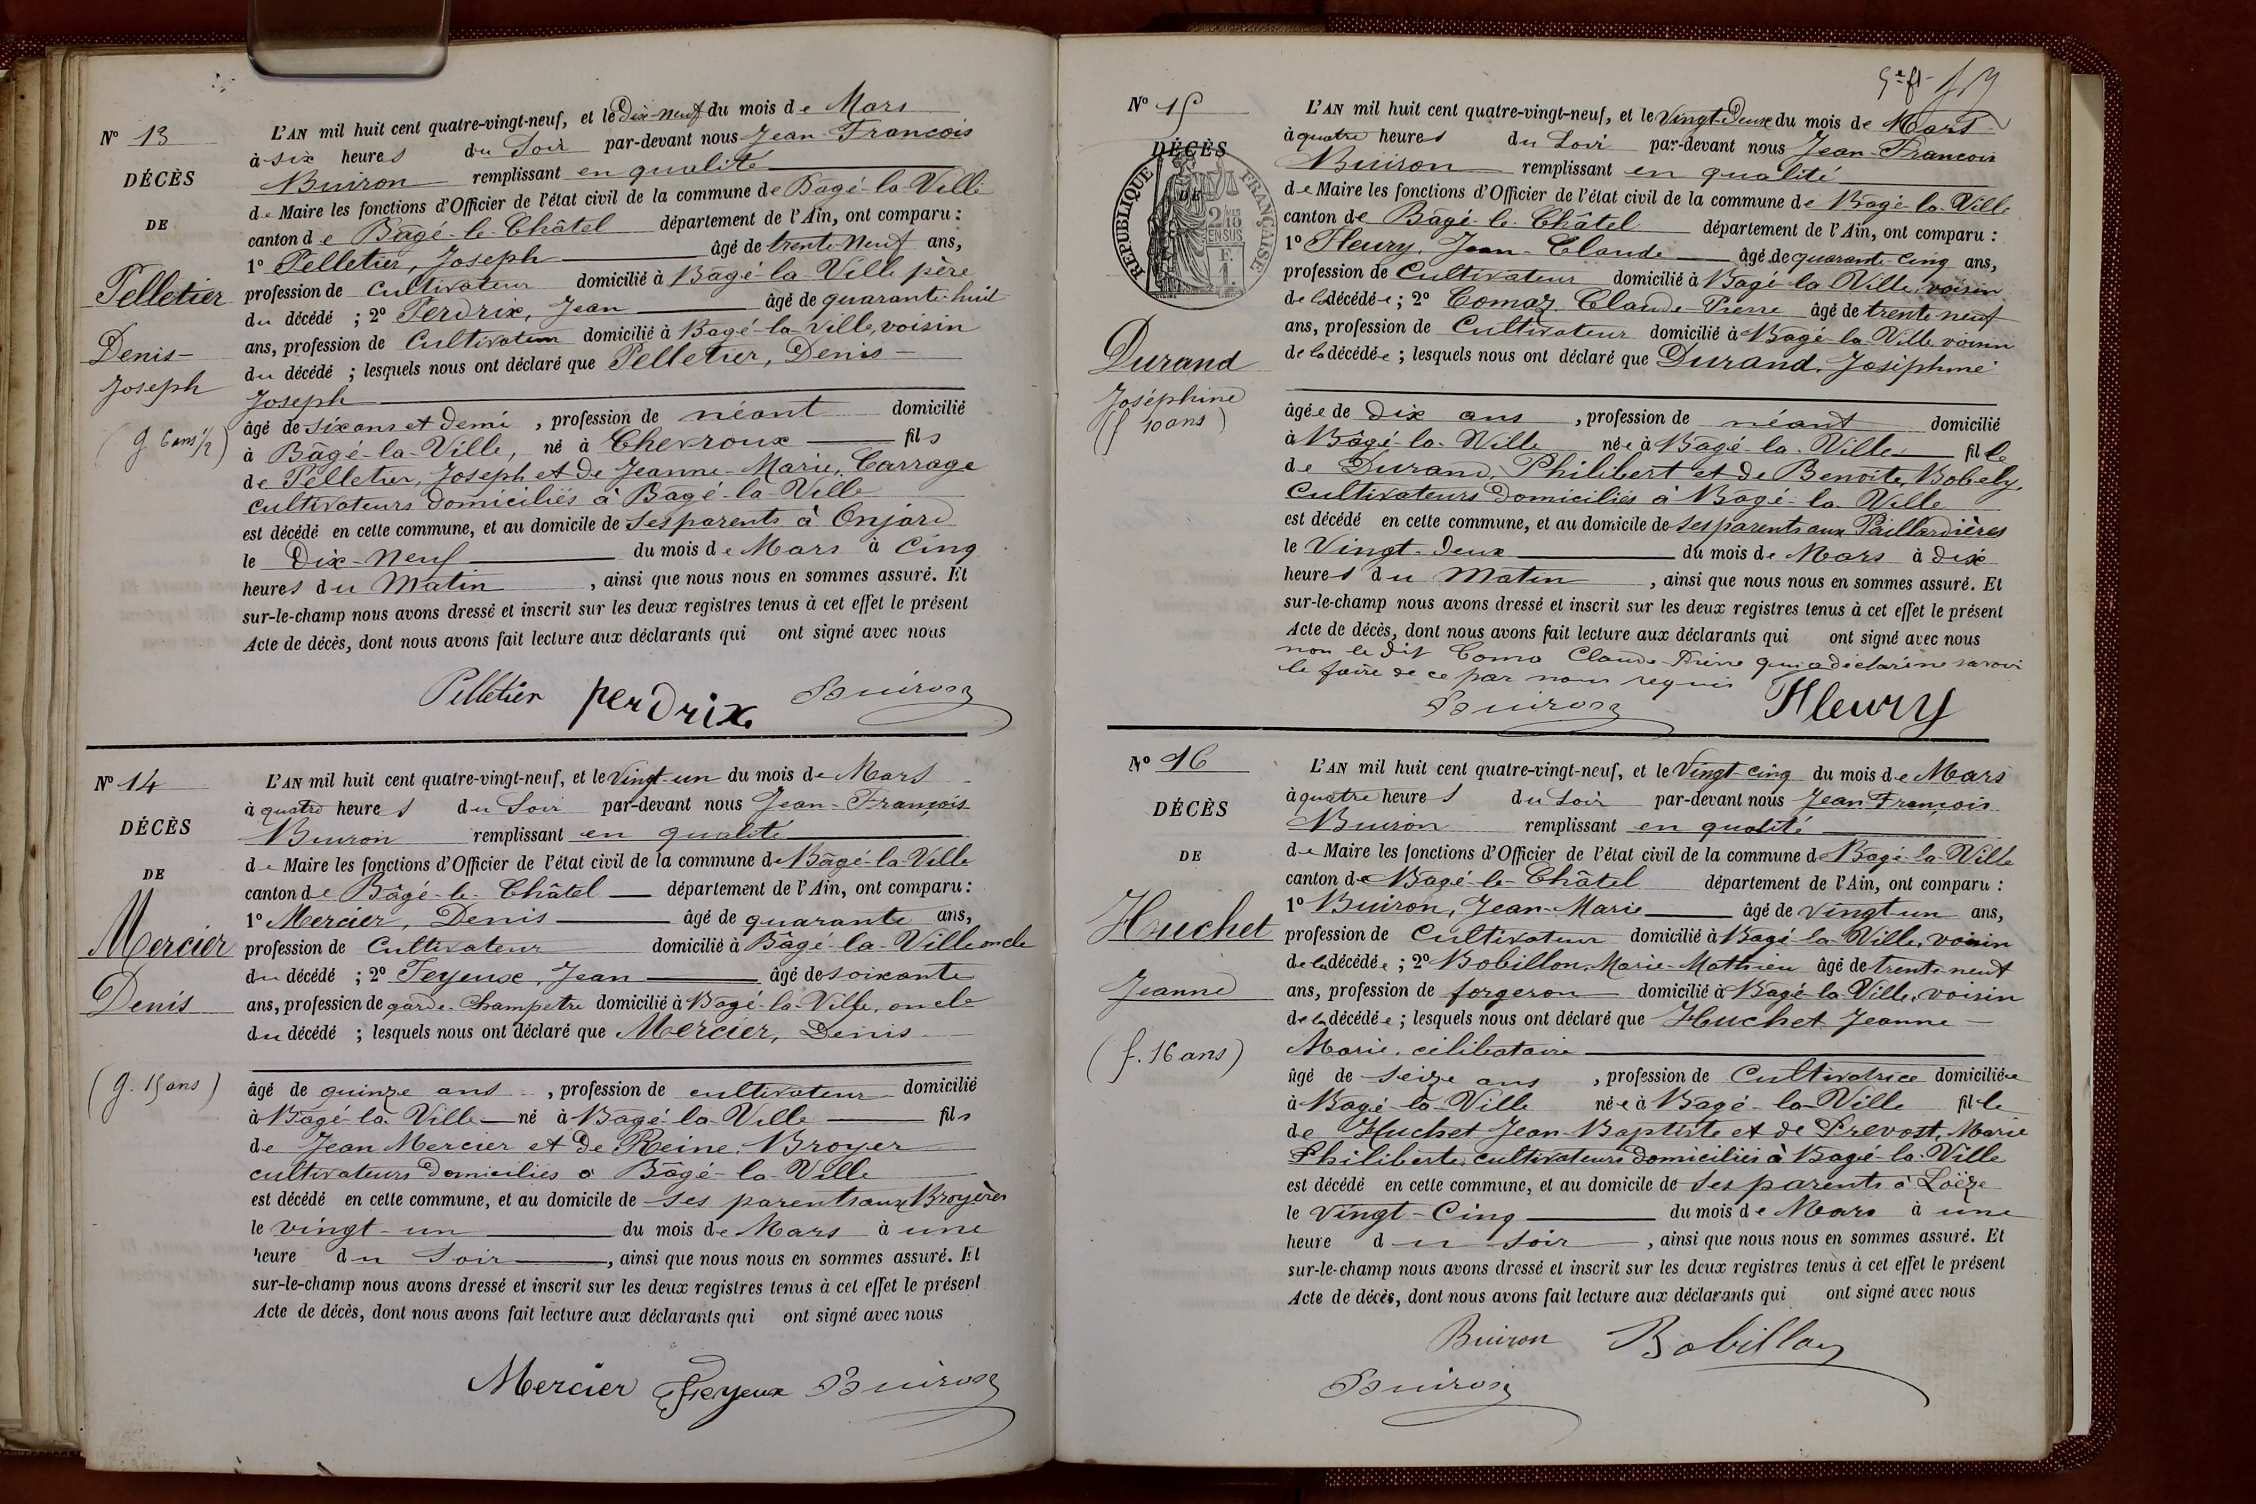 N° 13
DÉCÈS
DE
Pelletier
Denis-
Joseph
(g. 6 ans 1/2)
L'AN mil huit cent quatre-vingt-neuf, et le Dix-neuf du mois de Mars
à six heures du Soir par-devant nous Jean-François
Buiron remplissant en qualité
de Maire les fonctions d'Officier de l'état civil de la commune de Bâgé-la-Ville
canton de Bâgé-le-Châtel département de l'Ain, ont comparu :
1° Pelletier, Joseph âgé de trente-neuf ans,
profession de cultivateur domicilié à Bagé-la-Ville père
du décédé ; 2° Perdrix, Jean âgé de quarante-huit
ans, profession de Cultivateur domicilié à Bagé-la-Ville, voisin
du décédé ; lesquels nous ont déclaré que Pelletier, Denis-
Joseph
âgé de six ans et demi, profession de néant domicilié
à Bâgé-la-Ville, né à Chevroux fils
de Pelletier, Joseph et de Jeanne-Marie, Carrage
cultivateurs domiciliés à Bagé-la-Ville
est décédé en cette commune, et au domicile de ses parents à Onjard
le Dix-Neuf du mois de Mars à cinq
heures du Matin, ainsi que nous nous en sommes assuré. Et
sur-le-champ nous avons dressé et inscrit sur les deux registres tenus à cet effet le présent
Acte de décès, dont nous avons fait lecture aux déclarants qui ont signé avec nous
Pelletier perdrix Buiron
N° 14
DÉCÈS
DE
Mercier
Denis
(g. 15 ans)
L'AN mil huit cent quatre-vingt-neuf, et le Vingt-un du mois de Mars
à quatre heures du Soir par-devant nous Jean-François
Buiron remplissant en qualité
de Maire les fonctions d'Officier de l'état civil de la commune de Bâgé-la-Ville
canton de Bâgé-le-Châtel département de l'Ain, ont comparu :
1° Mercier, Denis âgé de quarante ans,
profession de Cultivateur domicilié à Bâgé-la-Ville oncle
du décédé ; 2° Feyeux, Jean âgé de soixante
ans, profession de garde-Champetre domicilié à Bagé-la-Ville, oncle
du décédé ; lesquels nous ont déclaré que Mercier, Denis
âgé de quinze ans, profession de cultivateur domicilié
à Bagé-la-Ville né à Bagé-la-Ville fils
de Jean Mercier et de Reine, Broyer
cultivateurs domiciliés à Bâgé-la-Ville
est décédé en cette commune, et au domicile de ses parents aux Broyères
le vingt-un du mois de Mars à une
heure du Soir, ainsi que nous nous en sommes assuré. Et
sur-le-champ nous avons dressé et inscrit sur les deux registres tenus à cet effet le présent
Acte de décès, dont nous avons fait lecture aux déclarants qui ont signé avec nous
Mercier Feyeux Buiron
N° 15
DÉCÈS
DE
RÉPUBLIQUE FRANÇAISE
Durand
Joséphine
(f 10 ans)
L'AN mil huit cent quatre-vingt-neuf, et le Vingt-Deux du mois de Mars
à quatre heures du Soir par-devant nous Jean-François
Buiron remplissant en qualité
de Maire les fonctions d'Officier de l'état civil de la commune de Bâgé-la-Ville
canton de Bâgé-le-Châtel département de l'Ain, ont comparu :
1° Fleury, Jean-Claude âgé de quarante-cinq ans,
profession de Cultivateur domicilié à Bagé-la-Ville, voisin
de la décédée ; 2° Comaz Claude-Pierre âgé de trente-neuf
ans, profession de Cultivateur domicilié à Bagé-la-Ville voisin
de la décédée ; lesquels nous ont déclaré que Durand, Joséphine
âgée de dix ans, profession de néant domicilié
à Bâgé-la-Ville née à Bagé-la-Ville fille
de Durand, Philibert et de Benoite, Bobely
cultivateurs domiciliés à Bagé-la-Ville
est décédé en cette commune, et au domicile de ses parents aux Paillardières
le Vingt-deux du mois de Mars à dix
heures du Matin, ainsi que nous nous en sommes assuré. Et
sur-le-champ nous avons dressé et inscrit sur les deux registres tenus à cet effet le présent
Acte de décès, dont nous avons fait lecture aux déclarants qui ont signé avec nous
non le dit Coma Claude-Pierre qui a déclaré ne savoir
le faire de ce par nous requis
Buiron Fleury
N° 16
DÉCÈS
DE
Huchet
Jeanne
(f. 16 ans)
L'AN mil huit cent quatre-vingt-neuf, et le Vingt-cinq du mois de Mars
à quatre heures du Soir par-devant nous Jean François
Buiron remplissant en qualité
de Maire les fonctions d'Officier de l'état civil de la commune de Bagé-la-Ville
canton de Bagé-le-Châtel département de l'Ain, ont comparu :
1° Buiron, Jean-Marie âgé de vingt-un ans,
profession de Cultivateur domicilié à Bagé-la-Ville, voisin
de la décédée ; 2° Bobillon, Marie-Mathieu âgé de trente-neuf
ans, profession de forgeron domicilié à Bagé-la-Ville, voisin
de la décédée ; lesquels nous ont déclaré que Huchet Jeanne-
Marie, célibataire
âgé de seize ans, profession de Cultivatrice domiciliée
à Bagé-la-Ville née à Bagé-la-Ville fille
de Huchet Jean-Baptiste et de Prevost, Marie
Philiberte, cultivateurs domiciliés à Bagé-la-Ville
est décédé en cette commune, et au domicile de ses parents à Loëze
le Vingt-Cinq du mois de Mars à une
heure du soir, ainsi que nous nous en sommes assuré. Et
sur-le-champ nous avons dressé et inscrit sur les deux registres tenus à cet effet le présent
Acte de décès, dont nous avons fait lecture aux déclarants qui ont signé avec nous
Buiron Bobillon
Buiron